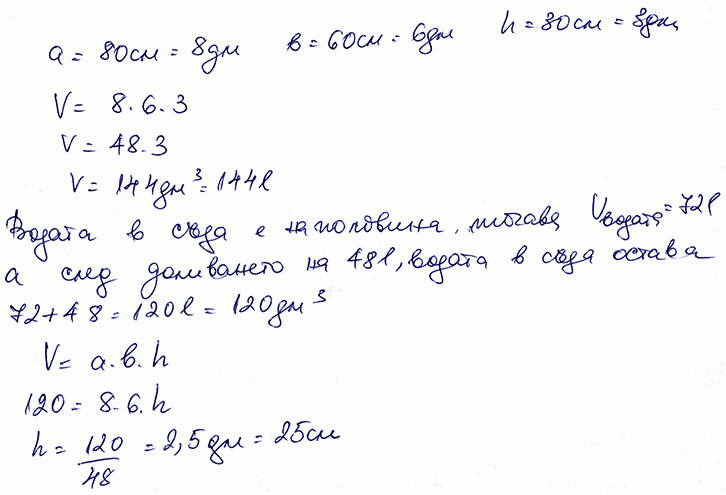 a = 80см = 8дм в = 60см = 6дм h = 30см = 3дм
V = 8.6.3
V = 48.3
V = 144дм³ = 144l
Водата в съда е наполовина, тогава Vводата = 72l
а след доливането на 48l, водата в съда остава
72+48 = 120l = 120дм³
V = a.b.h
120 = 8.6.h
h = 120/48 = 2,5дм = 25см